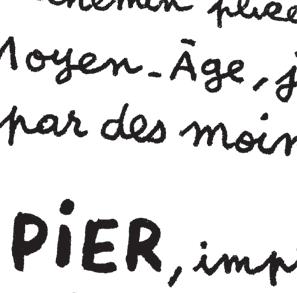 Moyen-Âge, j
par des moin
PiER, imp